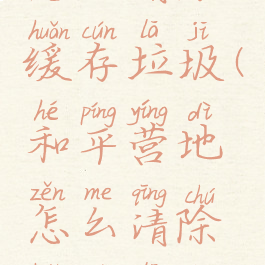 huǎn cún lā jī
缓存垃圾(
hé píng yíng dì
和平营地
zěn me qīng chú
怎么清除